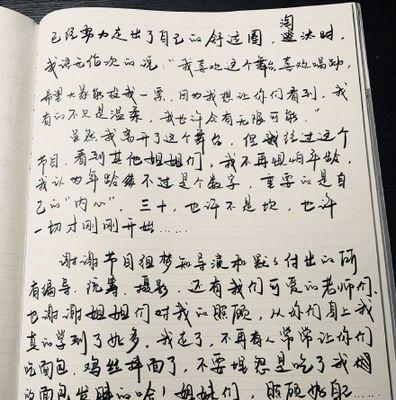 已经努力走出了自己的舒适圈，淘汰时，
我语无伦次的说："我喜欢这个舞台，喜欢唱跳，
希望大家能投我一票，因为我想让你们看到，我
有的不只是温柔，我也许会有无限可能。"
虽然我离开了这个舞台，但我经过这个
节目，看到其他姐姐们，我不再惧怕年龄，
我认为年龄不过是个数字，重要的是自
己的"内心"。三十，也许不是坎，也许
一切才刚刚开始……
谢谢节目组梦知导演和默默付出的所
有编导、统筹、摄影，还有我们可爱的老师们，
也谢谢姐姐们对我的照顾，从你们身上我
真的学到了好多。我走了，不再有人常常让你们
吃面包，鸡丝拌面了，不要埋怨是吃了我
的面包发胖的哈！姐妹们，照顾好自己……